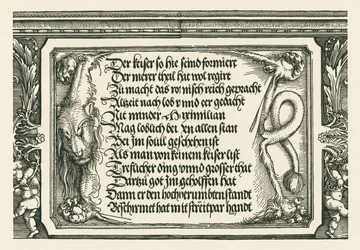 Der keiser so hie seind formiert
Der merer theil hat wol regirt
Zu macht das romisch reich gepracht
Allzeit nach lob vnnd eer gedacht
Nit minder Maximilian
Mag loblich bei jen allen stan
Bei jm souil geschehen ist
Als man von keinem keiser list
Treflicher ding vnnd grosser that
Dartzu got jm geholffen hat
Dann er den hochverumbten standt
Beschirmet hat mit streitpar handt